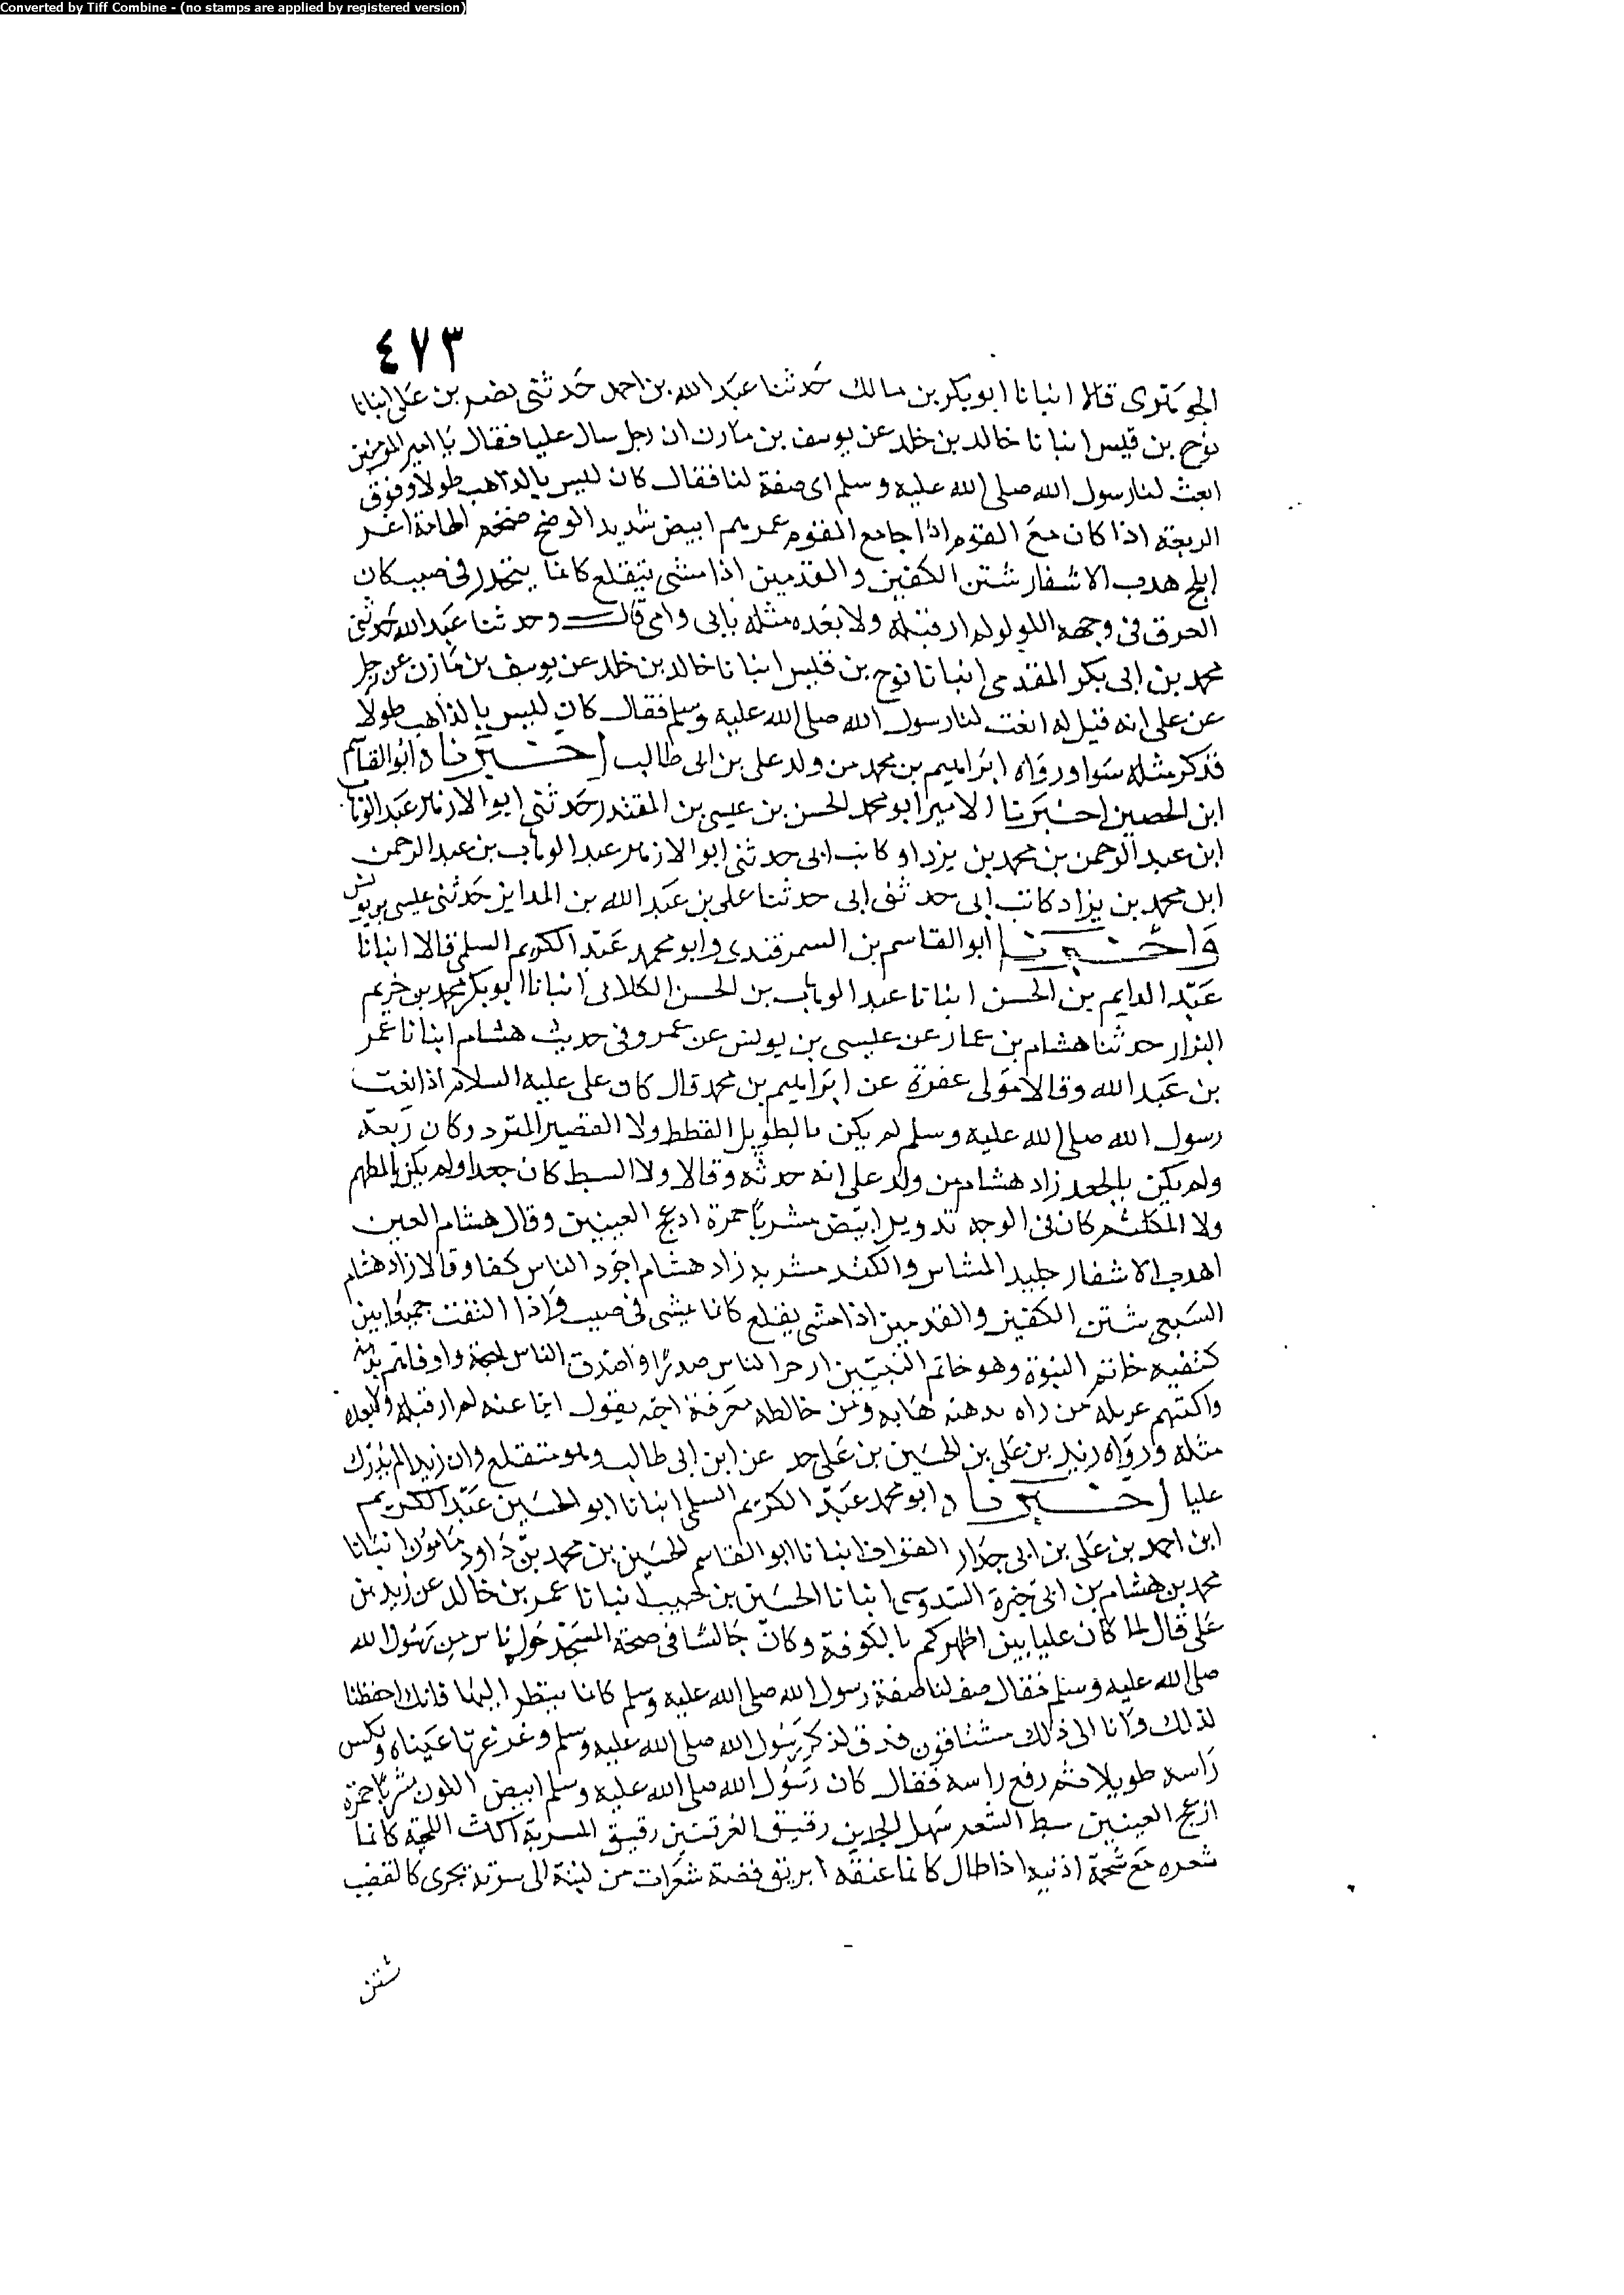 Converted by Tiff Combine - (no stamps are applied by registered version)
٤٧٣
الجوهرى قالا انبانا ابو بكر بن مالك حدثنا عبد الله بن احمد حدثنى نصر بن على انبانا
نوح بن قيس انبانا خالد بن خلد عن يوسف بن مازن ان رجل سال عليا فقال يا امير المومنين
ابعث لنا رسول الله صلى الله عليه وسلم اى صفة لنا فقال كان ليس بالذاهب طولا وفوق
الربعة اذا كان مع القوم اذا جامع القوم عمرهم ابيض شديد الوضح ضخم الهامة اغر
ابلج هدب الاشفار شثن الكفين والقدمين اذا مشى يتقلع كانما ينحدر فى صبب كان
العرق فى وجهه اللولو لم ار قبله ولا بعده مثله بابى وامى قال وحدثنا عبد الله حدثنى
محمد بن ابى بكر المقدمى انبانا نوح بن قيس انبانا خالد بن خلد عن يوسف بن مازن عن رجل
عن على انه قيل له انعت لنا رسول الله صلى الله عليه وسلم فقال كان ليس بالذاهب طولا
فذكر مثله سوا ورواه ابراهيم بن محمد من ولد على بن ابى طالب اخبرنا ابو القاسم
ابن الحصين اخبرنا الامير ابو محمد الحسن بن عيسى بن المقتدر حدثنى ابو الازهر عبد الوهاب
ابن عبد الرحمن بن محمد بن يزداد كاتب ابى حدثنى ابو الازهر عبد الوهاب بن عبد الرحمن
ابن محمد بن يزاد كاتب ابى حدثنى ابى حدثنا على بن عبد الله بن المداين حدثنى عيسى بن يونس
واخبرنا ابو القاسم بن السمرقندى وابو محمد عبد الكريم السلمى قالا انبانا
عبد الدايم بن الحسن انبانا عبد الوهاب بن الحسن الكلابى انبانا ابو بكر محمد بن خريم
البزار حدثنا هشام بن عمار عن عيسى بن يونس عن عمر وفى حديث هشام انبانا عمر
بن عبد الله وقالا مولى عفرة عن ابراهيم بن محمد قال كان على عليه السلام اذا نعت
رسول الله صلى الله عليه وسلم لم يكن بالطويل القطط ولا القصير المترد وكان ربعة
ولم يكن بالجعد زاد هشام من ولد على انه حدثه وقالا ولا السبط كان جعدا ولم يكن بالمطهم
ولا المكلثم كان فى الوجه تدوير ابيض مشربا حمرة ادعج العينين وقال هشام العين
اهدب الاشفار جليد المشاس والكتد مشربه زاد هشام اجود الناس كفا وقالا زاد هشام
السبعى شثن الكفين والقدمين اذا مشى يقلع كانما يمشى فى صبب واذا التفت جميعا بين
كتفيه خاتم النبوة وهو خاتم النبيين ارحر الناس صدرا واصدق الناس لهجة واوفاهم بذمة
من راه بدهته هابه ومن خالطه معرفة احبه يقول عنه لم ار قبله ولا بعده
مثله ورواه زيد بن على بن الحسين بن على عن ابن ابى طالب وهو منقلع وان زيدا لم يدرك
عليا اخبرنا ابو محمد عبد الكريم السلمى انبانا ابو الحسين عبد الكريم
ابن احمد بن على بن ابى جدار انبانا ابو القاسم الحسين بن محمد بن داود مامون انبانا
محمد بن هشام بن ابى خيرة السدوسى انبانا الحسين بن حبيب انبانا عمر بن خالد عن زيد بن
على قال لما كان عليا بين اظهركم بالكوفة وكان جالسا فى صحة المسجد حول ناس من رسول الله
صلى الله عليه وسلم فقال صف لنا صفة رسول الله صلى الله عليه وسلم كانا ينظر اليها فانك احفظنا
لذلك وانا الى ذلك مشتاقون فدق لذكر رسول الله صلى الله عليه وسلم وغرغرتها عيناه ونكس
راسه طويلا ثم رفع راسه فقال كان رسول الله صلى الله عليه وسلم ابيض اللون مشربا حمرة
ازعج العينين سبط الشعر سهل الخدين رقيق العرنين رقيق المسربة اكاث اللحية كانما
شعره مع شحمة اذنيه اذا طال كانما عنقه ابريق فضة شعرات من لبنة الى سرته تجرى كالقضيب
شثن